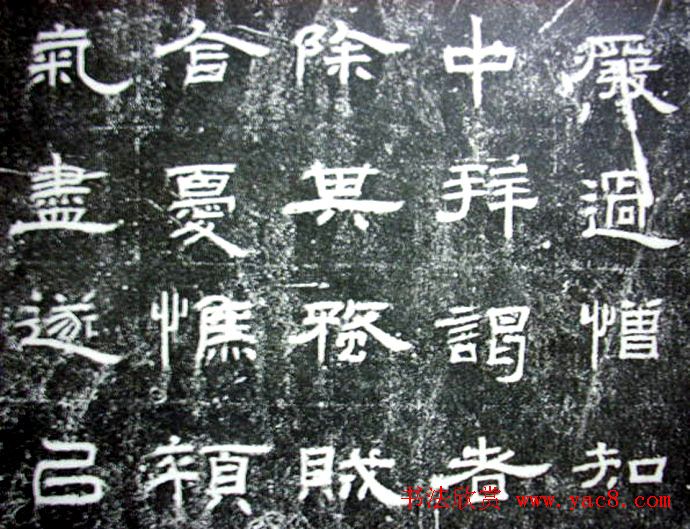 嚴過憎知
中拜謁者
除其賊
含憂憔顇
氣盡遂已
书法欣赏 www.yac8.com